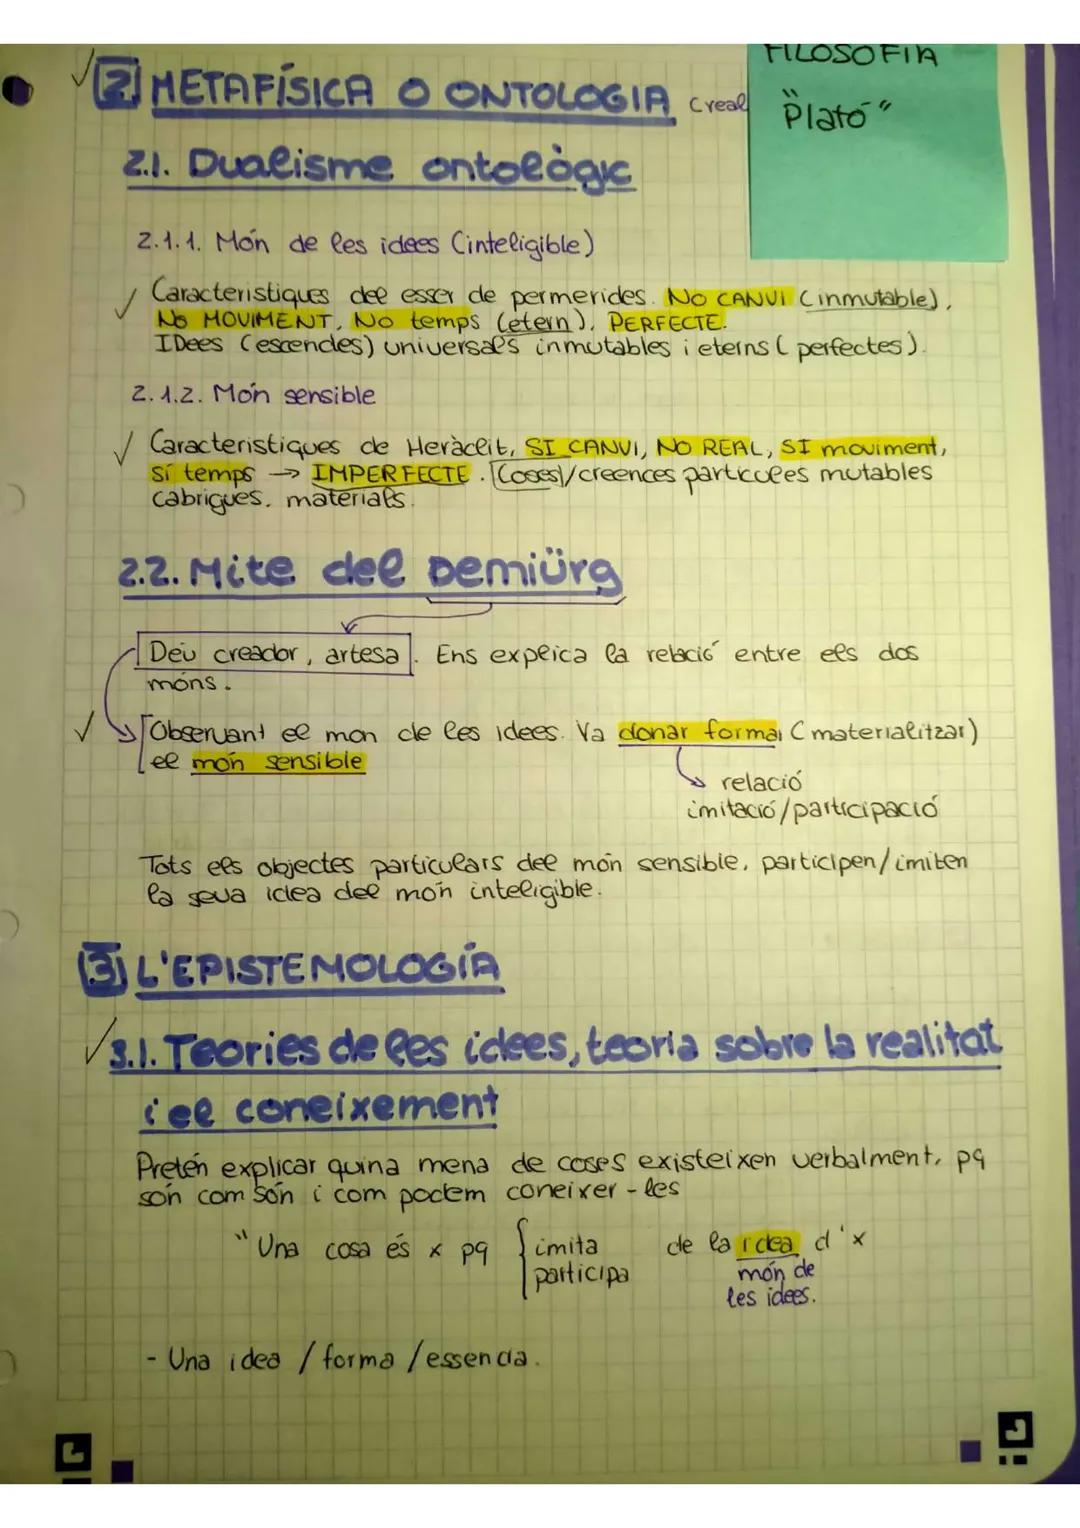 FILOSOFIA
"Plató"
✓ 2 METAFÍSICA O ONTOLOGIA (real
2.1. Dualisme ontològic
2.1.1. Món de les idees (inteligible)
✓ Caracteristiques del esser de permerides. NO CANVI (inmutable),
NO MOVIMENT, No temps (etern), PERFECTE.
IDees (escencles) universals inmutables i eterns (perfectes).
2.1.2. Món sensible
✓ Caracteristiques de Heràclit, SI CANVI, NO REAL, SI moviment,
Sí temps → IMPERFECTE. [Coses]/creences particules mutables
cabrigues. materials.
2.2. Mite del Demiürg
Deu creador, artesa. Ens explica la relació entre els dos
móns.
✓ Observant el mon de les idees. Va donar forma, (materialitzar)
el món sensible
relació
imitació/participació
Tots els objectes particulars del món sensible, participen/imiten
la seva idea del món inteligible.
3 L'EPISTEMOLOGÍA
✓ 3.1. Teories de les idees, teoria sobre la realitat
i el coneixement
Pretén explicar quina mena de coses existeixen verbalment, pq
són com són i com podem coneixer-les
"Una cosa és x pq { imita de la idea d'x
participa món de
les idees.
- Una idea / forma / essencia.